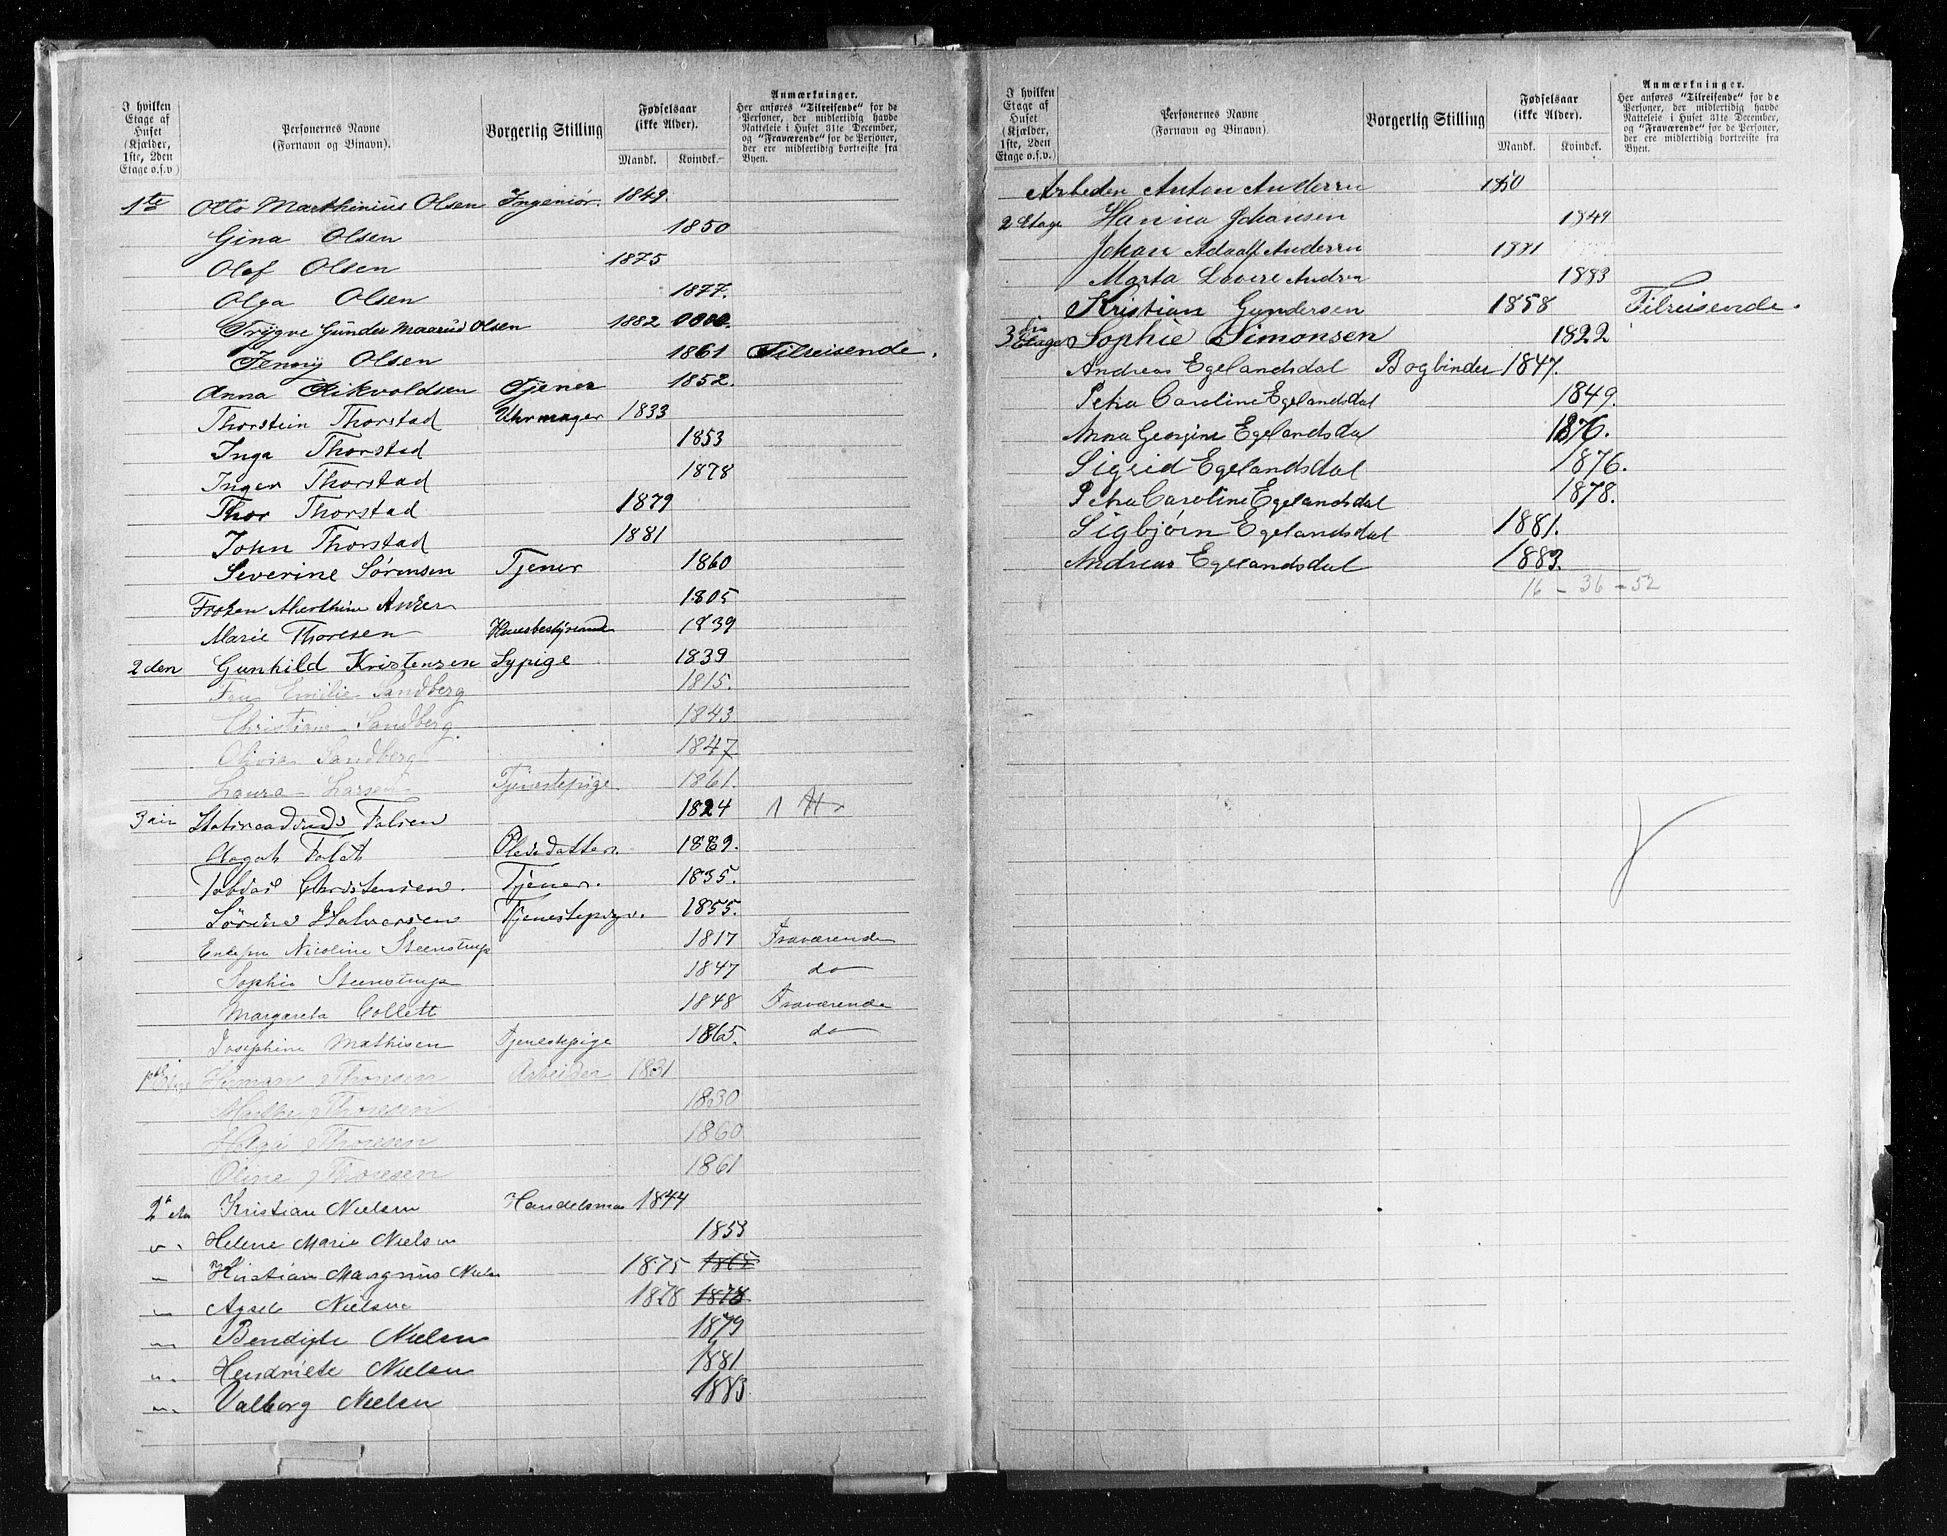 I hvilken
Etage af
Huset
(Kjælder,
1ste, 2den
Etage o.s.v)
Personernes Navne
(Fornavn og Binavn).
Borgerlig Stilling
Fødselsaar
(ikke Alder).
Mandk. Kvindek.
Anmærkninger.
Her anføres "Tilreisende" for de
Personer, der midlertidig havde
Natteleie i Huset 31te December,
og "Fraværende" for de Personer,
der ere midlertidig bortreiste fra
Byen.
1ste Otto Marthinius Olsen Ingeniør. 1849.
Gina Olsen 1850
Olaf Olsen 1875
Olga Olsen 1877.
Trygve Gunder Maarud Olsen 1882
Jenny Olsen 1861 Tilreisende.
Anna Rikvoldsen Tjener 1852.
Thorstein Thorstad Uhrmager 1833
Inga Thorstad 1853
Inger Thorstad 1878
Thor Thorstad 1879
John Thorstad 1881
Severine Sørensen Tjener 1860
Frøken Marthine Anker 1805
Marie Thoresen Huusbestyrerinde 1839
2den Gunhild Kristensen Sypige 1839
Fru Emilie Sandberg 1815.
Christiane Sandberg. 1843
Olivia Sandberg 1847
Laura Larsen Tjenestepige 1861.
Falsen 1824
Pleiedatter. 1869.
Tobias Christensen. Tjener. 1835.
Sørine Halversen Tjenestepige. 1855.
Enkefru Nicoline Steenstrup 1817 Fraværende
Sophie Steenstrup 1847 do
Margareta Collett 1848 Fraværende
Josephine Mathisen Tjenestepige 1865. do
Herman Thoresen Arbeider 1831
Marthe Thoresen 1830
Helga Thoresen 1860
Oline Thoresen 1861
Kristian Nielsen Handelsman 1844
Helene Marie Nielsen 1853
Kristian Magnus Nielsen 1875 1865
Axsel Nielsen 1878 1878
Bendigte Nielsen 1879
Hendriete Nielsen 1881
Valborg Nielsen 1883
I hvilken
Etage af
Huset
(Kjælder,
1ste, 2den
Etage o.s.v.)
Personernes Navne
(Fornavn og Binavn).
Borgerlig Stilling
Fødselsaar
(ikke Alder).
Mandk. Kvindek.
Anmærkninger.
Her anføres "Tilreisende" for de
Personer, der midlertidig havde
Natteleie i Huset 31te December,
og "Fraværende" for de Personer,
der ere midlertidig bortreiste fra
Byen.
Arbeder Anton Andersen 1850
2 Etage Hanna Johansen 1849
Johan Adolf Andersen 1881
Marta Lovise Andrea 1883
Kristian Gundersen 1858 Tilreisende.
3die Etage Sophie Simonsen 1822
Andreas Egelandsdal Bogbinder 1847.
Petra Caroline Egelandsdal 1849.
Anna Georgine Egelandsdal 1876.
Sigrid Egelandsdal 1876.
Petra Caroline Egelandsdal 1878.
Sigbjørn Egelandsdal 1881.
Andreas Egelandsdal 1883.
16 - 36 = 52